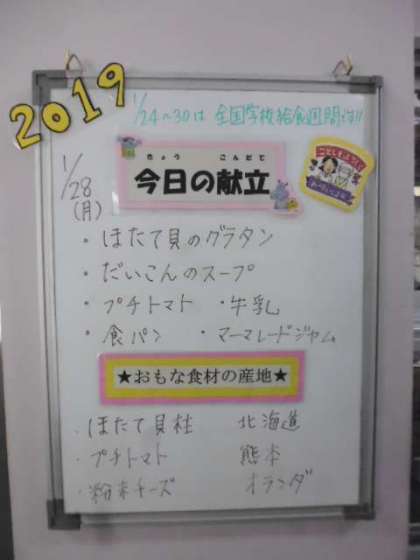 2019
1/24~30は 全国学校給食週間です!!
きょう こんだて
今日の献立
1/28
(月)
・ほたて貝のグラタン
・だいこんのスープ
・プチトマト ・牛乳
・食パン ・マーマレードジャム
★おもな食材の産地★
・ほたて貝柱 北海道
・プチトマト 熊本
・粉末チーズ オランダ